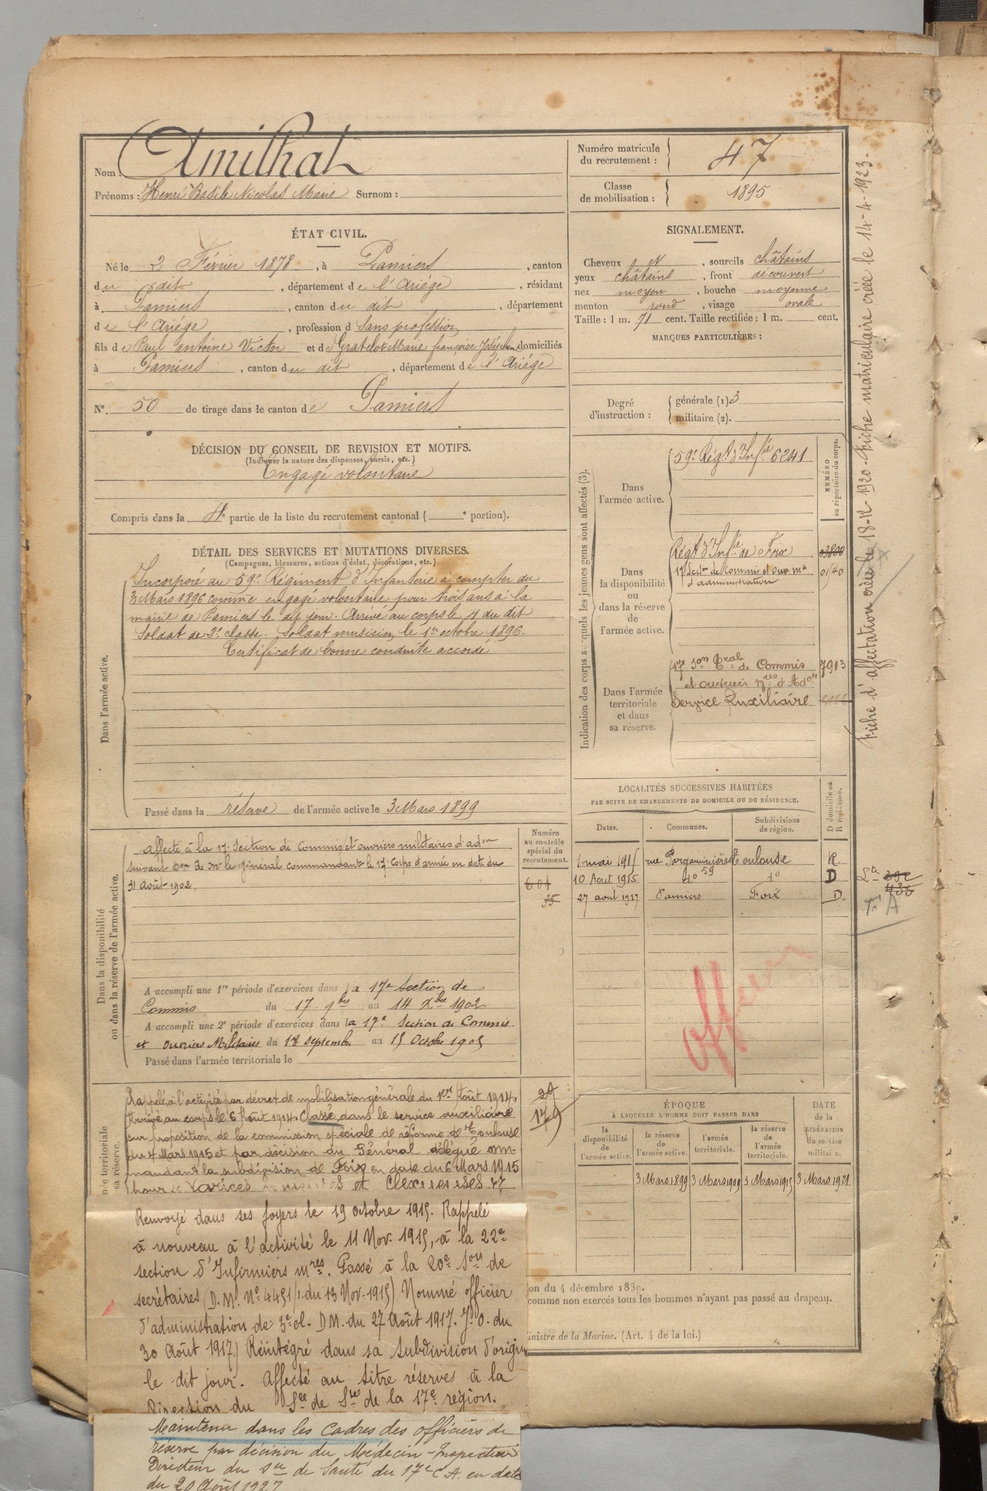 Nom Amilhat
Prénoms : Henri Basile Nicolas Marie Surnom :
Numéro matricule du recrutement : 47
Classe de mobilisation : 1895
ÉTAT CIVIL.
Né le 2 Février 1878, à Pamiers, canton
du dit, département de l'Ariège, résidant
à Pamiers, canton du dit, département
de l'Ariège, profession d sans profession,
fils de Paul antoine Victor et de Gratelot Marie françoise domiciliés
à Pamiers, canton du dit, département de l'Ariège
N° 50 de tirage dans le canton de Pamiers
SIGNALEMENT.
Cheveux, sourcils châtains
yeux châtains, front découvert
nez moyen, bouche moyenne
menton rond, visage ovale
Taille : 1 m. 71 cent. Taille rectifiée : 1 m. cent.
MARQUES PARTICULIÈRES :
Degré d'instruction : générale (1) 3
militaire (2).
DÉCISION DU CONSEIL DE REVISION ET MOTIFS.
(Indiquer la nature des dispenses, sursis, etc.)
Engagé volontaire
Compris dans la 4e partie de la liste du recrutement cantonal ( e portion).
DÉTAIL DES SERVICES ET MUTATIONS DIVERSES.
(Campagnes, blessures, actions d'éclat, décorations, etc.)
Dans l'armée active.
Incorporé au 59e Régiment d'Infanterie à compter du
3 Mars 1896 comme engagé volontaire pour trois ans à la
mairie de Pamiers le dit jour. Arrivé au corps le dit
Soldat de 2e classe. Soldat musicien le 1er octobre 1896.
Certificat de bonne conduite accordé
Passé dans la réserve de l'armée active le 3 Mars 1899
Indication des corps auxquels les jeunes gens sont affectés (3).
NUMÉRO au répertoire du corps.
Dans l'armée active.
59e Régt d'Infie 6241
Dans la disponibilité ou dans la réserve de l'armée active.
Régt d'Infie de Foix
17e Secton de Commis et ouv. mres
d'administration
Dans l'armée territoriale et dans sa réserve.
17e Son Tale de Commis 7913
et ouvriers mres d'Adon
Service Auxiliaire
Fiche d'affectation créée le 18-12-1920 - Fiche matriculaire créée le 14-4-1923.
Dans la disponibilité ou dans la réserve de l'armée active.
Numéro au contrôle spécial du recrutement.
Affecté à la 17e Section de Commis et ouvriers militaires d'adon
suivant de Mr le général commandant le 17e Corps d'armée en date du
31 août 1902.
A accompli une 1re période d'exercices dans la 17e Section de
Commis du 17 9bre au 14 Xbre 1902
A accompli une 2e période d'exercices dans la 17e Section de Commis
et ouvriers Militaires du septembre au 15 Octobre 1905
Passé dans l'armée territoriale le
LOCALITÉS SUCCESSIVES HABITÉES
PAR SUITE DE CHANGEMENTS DE DOMICILE OU DE RÉSIDENCE.
Dates. Communes. Subdivisions de région. D domicile ou R résidence.
1 mai 1911 rue Pargaminières Toulouse R.
10 Aout 1915 do 59 do D
27 aout 1917 Pamiers Foix D.
Officier
Rappelé à l'activité par décret de mobilisation générale du 1er Août 1914.
Arrivé au corps le 6 Août 1914. Classé dans le service auxiliaire
sur proposition de la commission spéciale de réforme de Toulouse
du 4 Mars 1915 et par décision du Général délégué com
mandant la subdivision de Foix en date du 6 Mars 1915
pour Varices
Renvoyé dans ses foyers le 19 octobre 1915. Rappelé
à nouveau à l'activité le 11 Nov. 1915, à la 22e
section d'Infirmiers mres. Passé à la 20e Son de
secrétaires (D.M. No 4451/1 du 13 Nov. 1915) Nommé officier
d'administration de 3e cl. D.M. du 27 Août 1917. J.O. du
30 Août 1917) Réintégré dans sa subdivision d'origine
le dit jour. Affecté au titre réserve à la
Direction du Sce de Sté de la 17e région.
Maintenu dans les Cadres des officiers de
réserve par décision du Médecin-Inspecteur
Directeur du Sce de Santé du 17e C.A. en date
du 20 Août 1927
ÉPOQUE
À LAQUELLE L'HOMME DOIT PASSER DANS
la disponibilité de l'armée active. la réserve de l'armée active. l'armée territoriale. la réserve de l'armée territoriale.
DATE de la LIBÉRATION du service militaire.
3 Mars 1899 3 Mars 1909 3 Mars 1915 3 Mars 1921
on du 4 décembre 1889.
comme non exercés tous les hommes n'ayant pas passé au drapeau.
inistre de la Marine. (Art. 4 de la loi.)